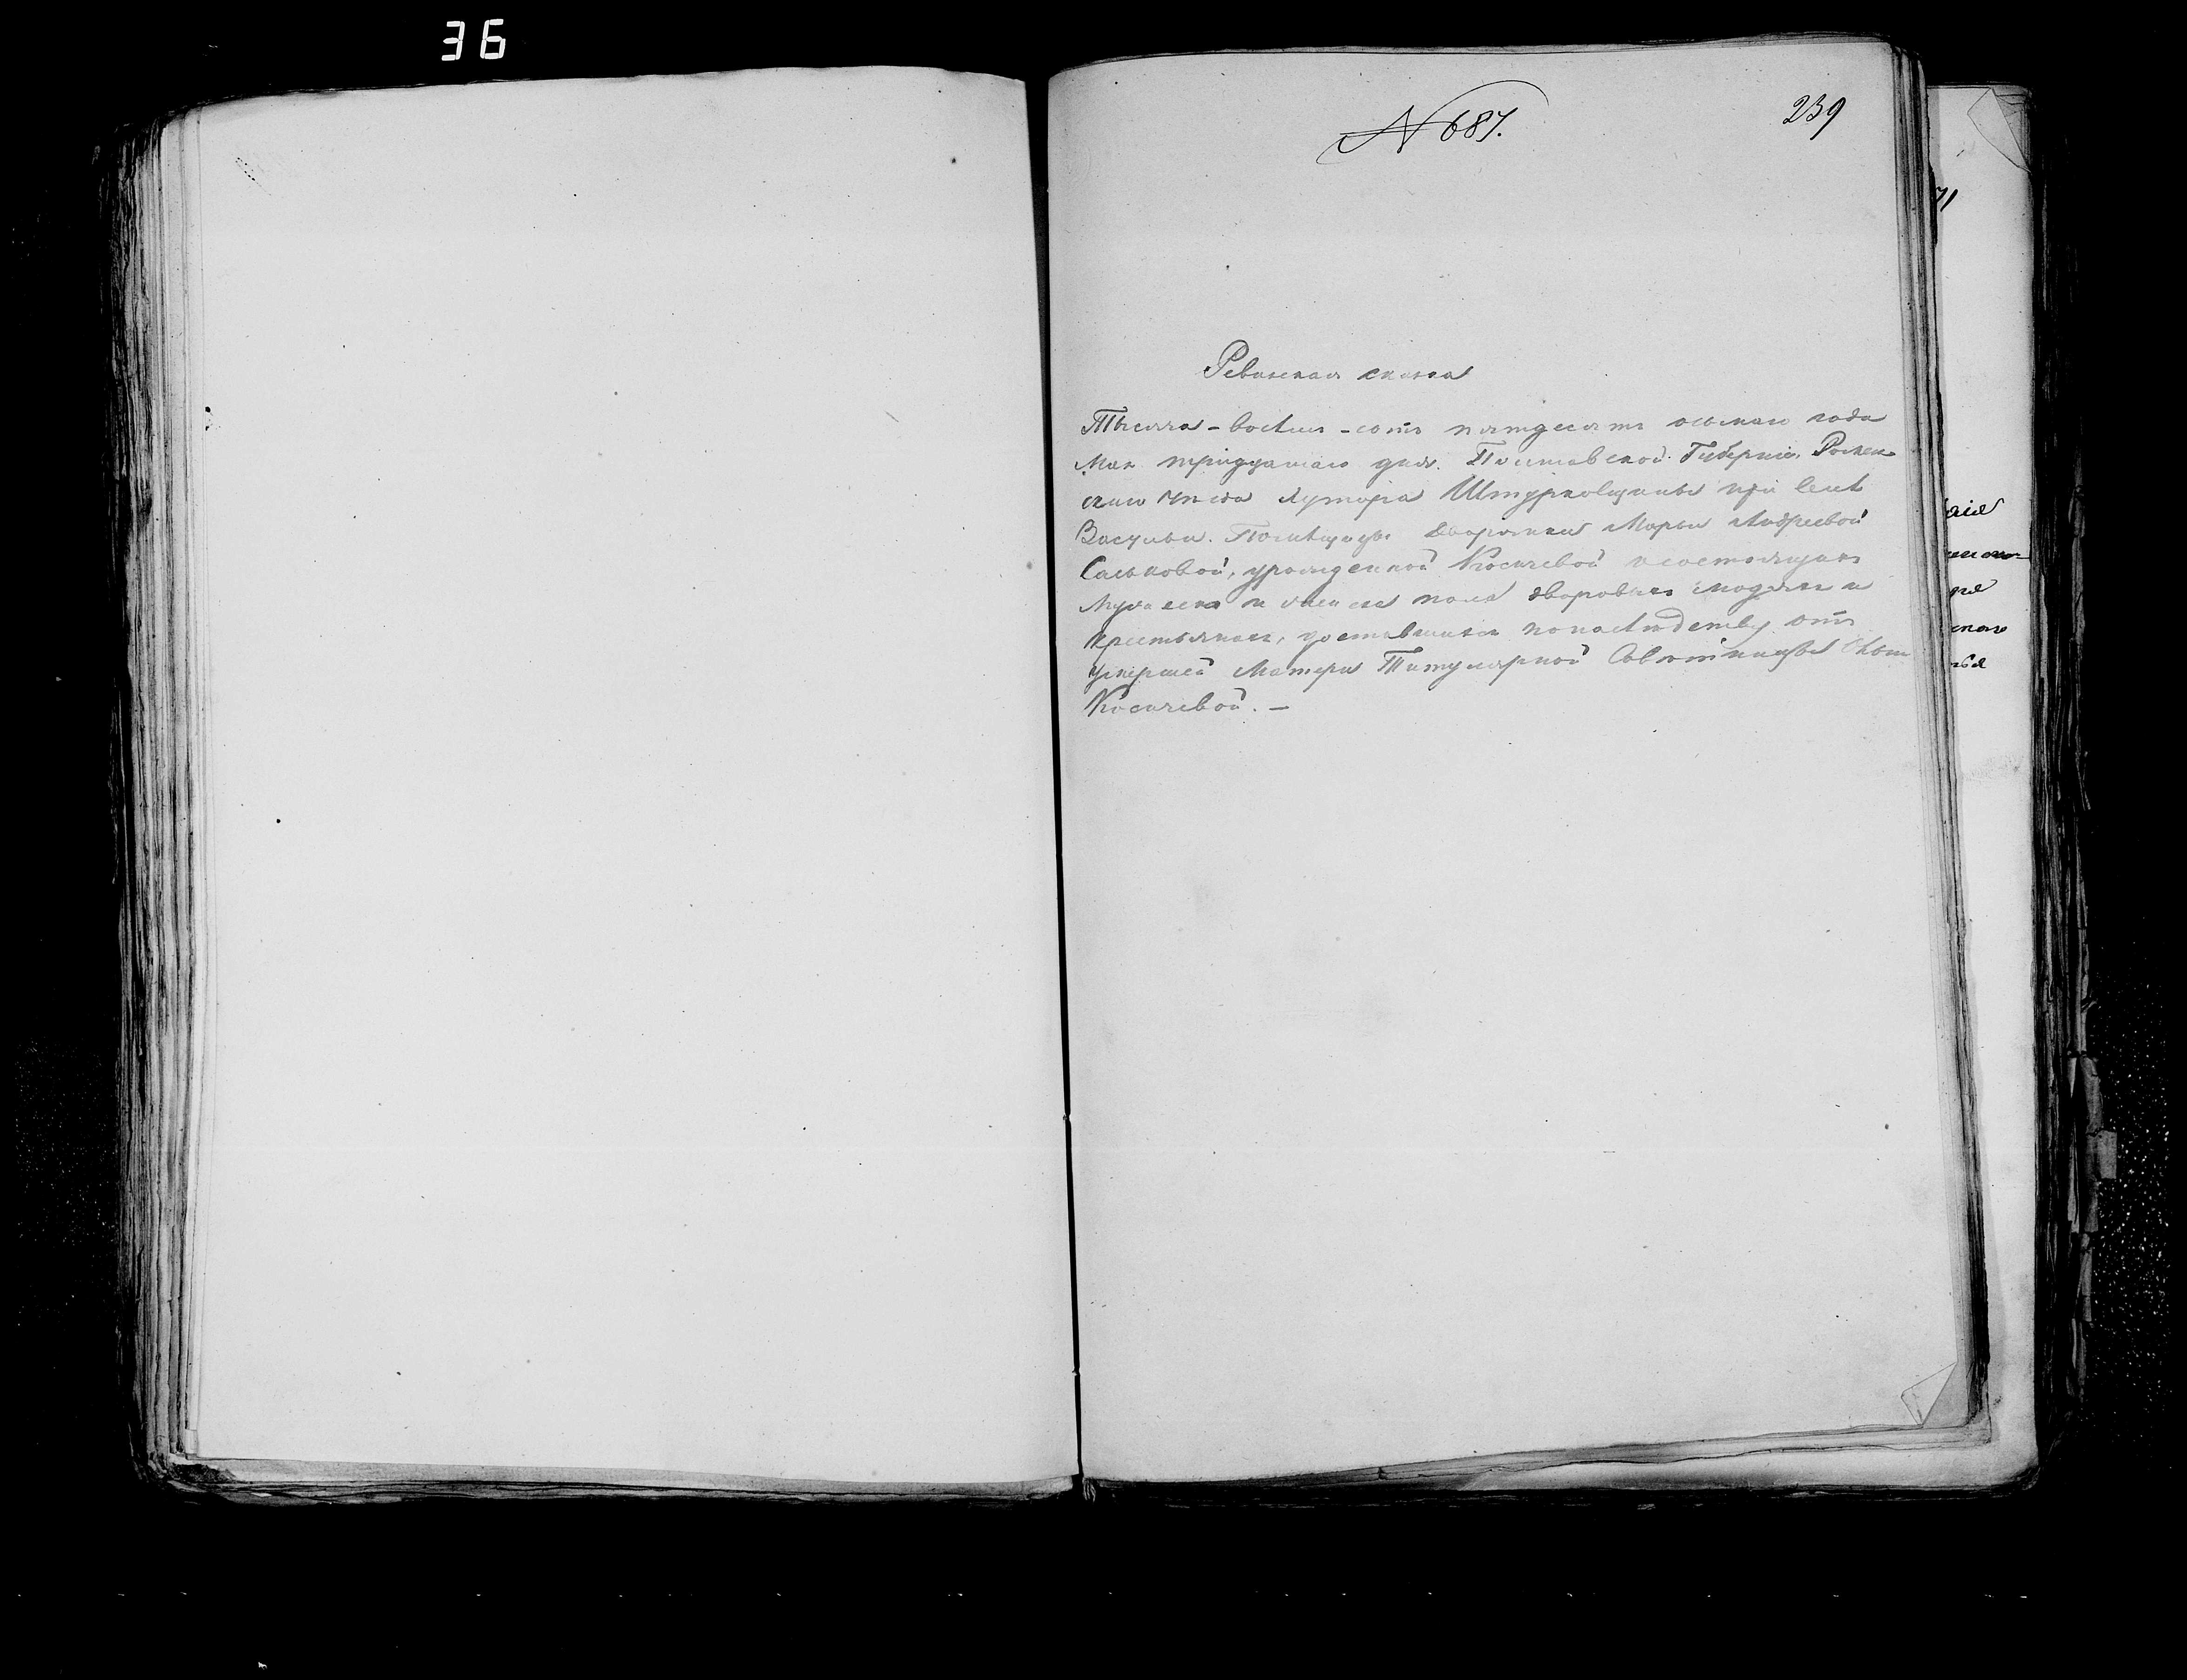 36
239
N 687.
Ревизская сказка
Тысяча - восем - сотъ пятдесятъ осьмаго года
Мая тридцатаго дня. Полтавской Губерніи Ромен-
скаго Уѣзда Хутора при селѣ
Засульи. Помѣщицы Дворянки Марьи Андреевой
Сальковой, урожденной Косичевой о состоящихъ
Мужеска и женска пола дворовыхъ людяхъ и
крестьянахъ, доставшихся по наслѣдству отъ
умершей Матери Титулярной Совѣтницы
Косичевой. —
71